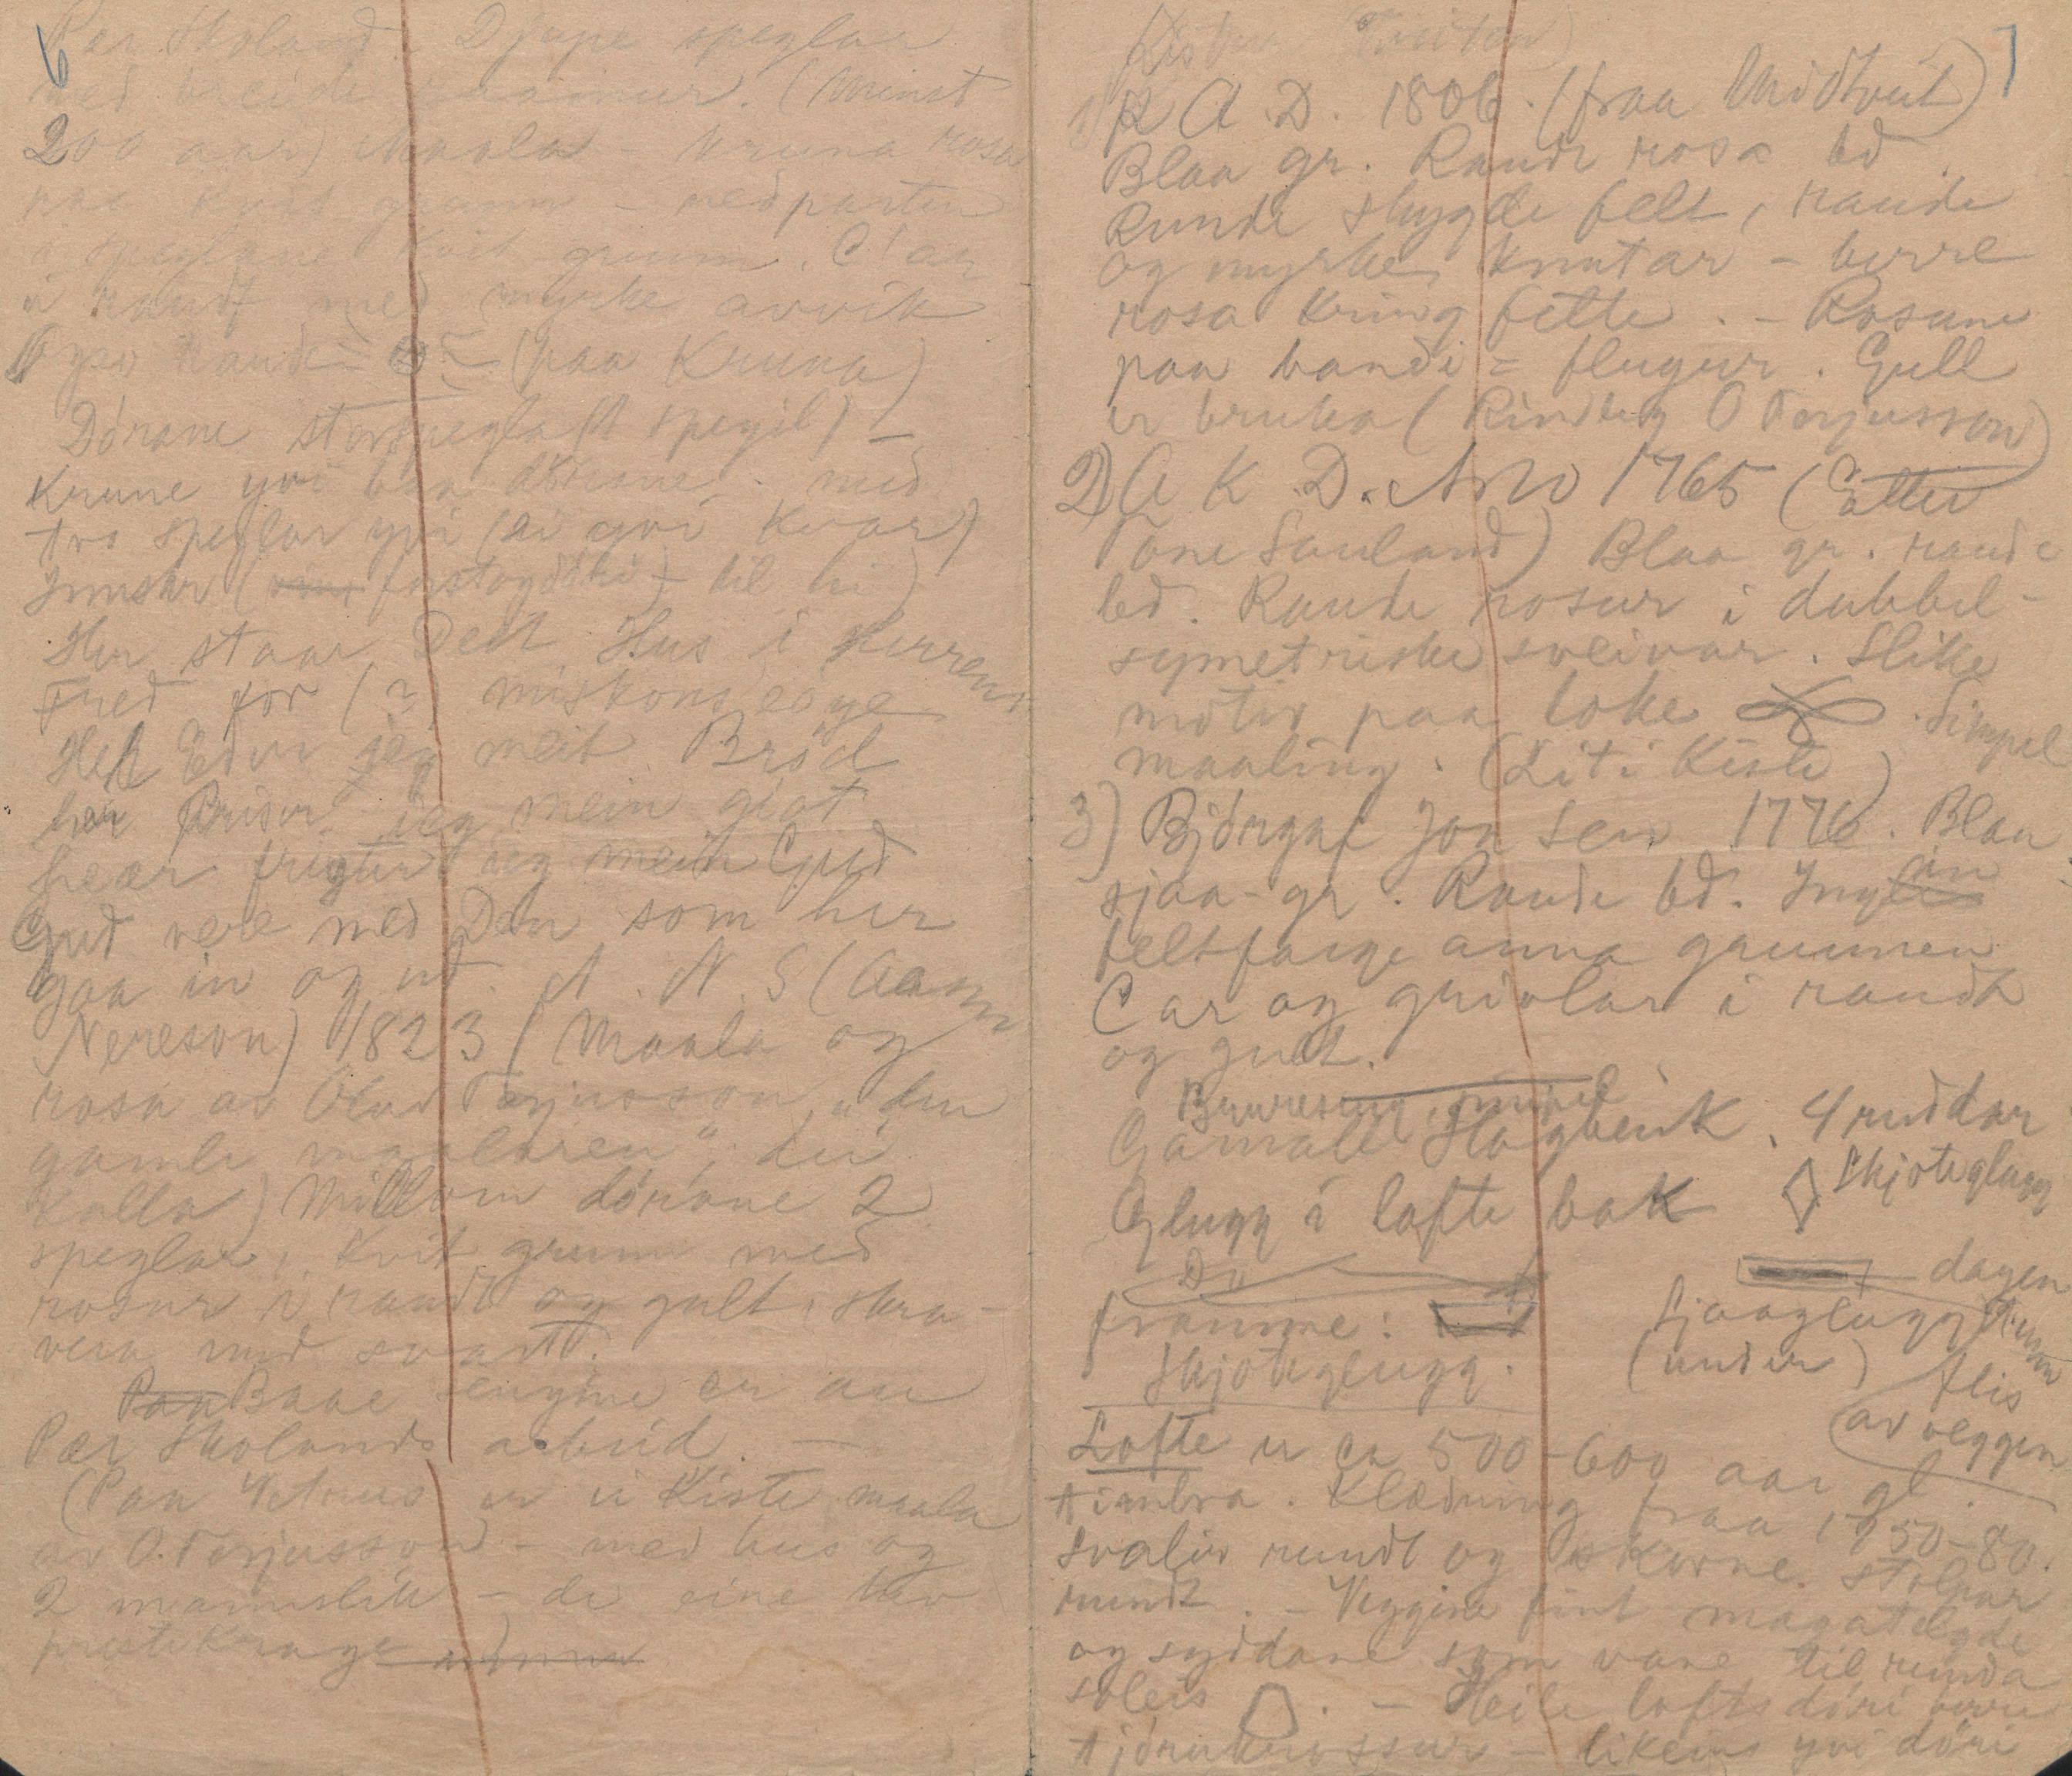 6
Pær Skoland. Djupe speglar
med breide raamur. (Minst
200 aar) Maala - Kruna rosa
paa kvit grunn - nedparten
i speglane kvit grunn. C'ar
i raudt med myrke avvik
(paa Kruna)
Dórane storspegla (1 spegil) -
Krune yvi baa dórane. med
tvo speglar yvi (ei yvi kvar)
Innskr ( forstogdóri) - til hi)
Her staar Deit Hus i Herrens
Fred for (?) miskons eóge
Heft Eder jeg meit Bród
her Briser jeg mein glót
heer frigter ieg mein Gud
Gud vere med Den som her
gaa in og ud. A. N. S (Aasm
Nereson) 1823 (Maala og
rosa av Olav Torjusson, "den
gamle maalaren", dei
kalla) Millom dórane 2
speglar, kvit grunn med
rosur i raudt og gult, skra-
vera med svart.
Paa Baae sengine er au
Pær Skolands arbeid. -
(Paa Vetrus er ei Kiste maala
av O. Torjusson - med hus og
2 mannslik - de eine hev
prestekrage
7
Kistur
1) K A. D. 1806. (fraa Midtveit)
Blaa gr. Raude rosa bd
Runde skygde felt, raude
og myrke, knutar - berre
rosa kring felte. - Rosune
paa bandi = flugur. Gull
er bruka (Rindby O Torjusson)
2) A K D. Ano 1765 (Etter
Tone Sauland) Blaa gr. raude
bd. Raude rosur i dubbel-
symetriske sveivar. Slike
motiv paa loke. Simpel
maaling. (Liti Kiste)
3) Bjórgaf Jon sen 1776. Blaa
sjaa-gr. Raude bd. Ingjin
feltfarge anna grunnen
C ar og grivlar i raudt
og gult.
Buuresing, simpel
Gamall Slagbenk. 4 ruddar
Glugg i lofte bak
Skjoteglugg
framme:
Skjoteglugg.
dagen
Sjaaglugg
(under)
flis
av veggen
Lofte er ca 500-600 aar gl.
timbra. Klædning fraa 1750-80.
Svalir rundt og skorne. stolpar
rundt. - Veggine fint magatelgde
og syddane som vane til runda
soleis. - Heile loftsdóri berre
tjórukrossur - likeins yvi dóri